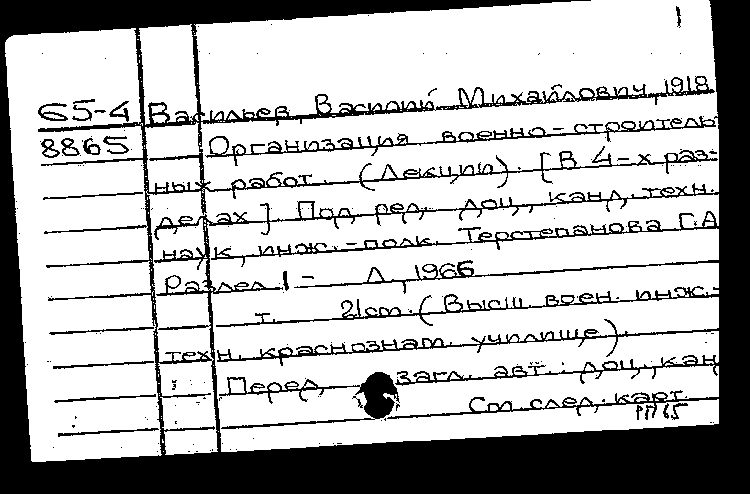 1
65-4 Васильев, Василий Михайлович, 1918
8865 Организация военно-строитель
ных работ. (Лекции). [В 4-х раз-
делах]. Под ред. доц., канд. техн.
наук, инж.-полк. Терстепанова Г.А
Раздел 1 - Л., 1966
т. 21см. (Высш. воен. инж.-
техн. краснознам. училище).
Перед загл. авт.: доц., кан
См. след. карт.